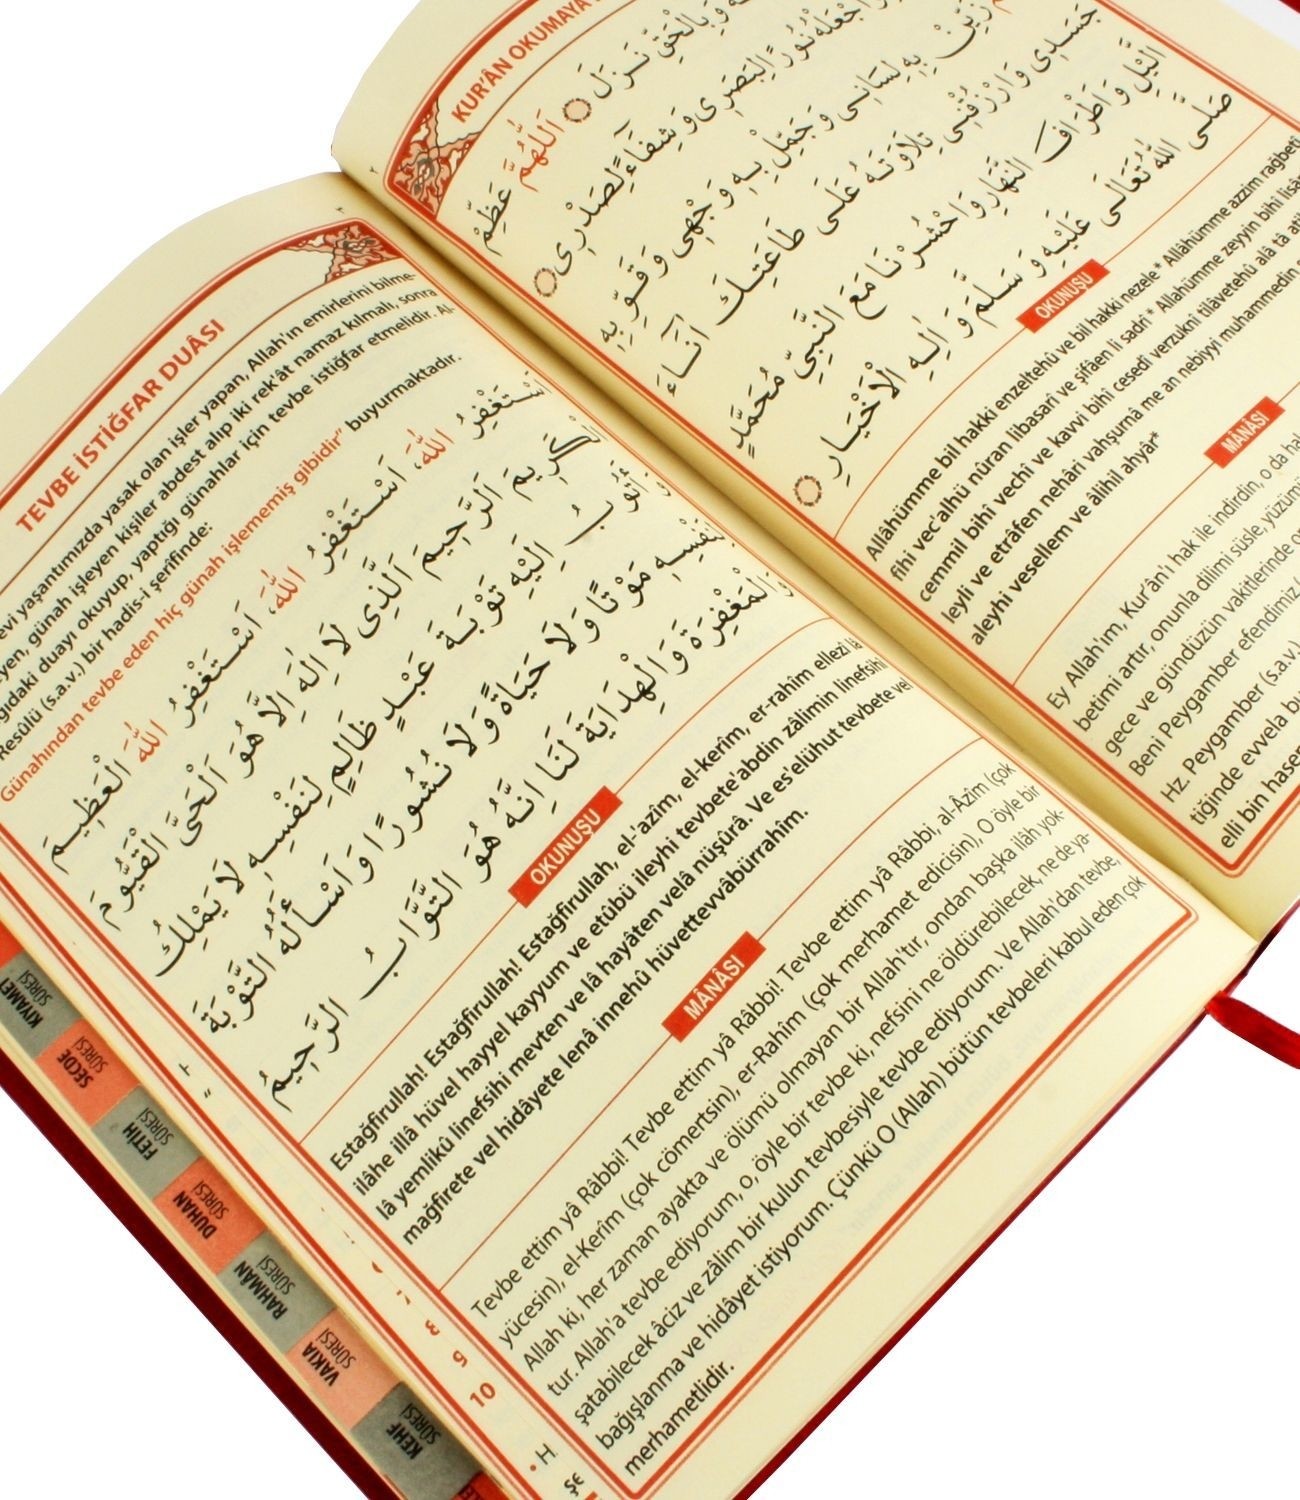 TEVBE İSTİĞFAR DUÂSI
evi yaşantımızda yasak olan işler yapan, Allah'ın emirlerini bilme-
yen, günah işleyen kişiler abdest alıp iki rek'ât namaz kılmalı, sonra
duayı okuyup, yaptığı günahlar için tevbe istiğfar etmelidir. Al-
Resûlü (s.a.v.) bir hadis-i şerifinde:
Günahından tevbe eden hiç günah işlememiş gibidir" buyurmaktadır.
اَسْتَغْفِرُ اللّٰهَ، اَسْتَغْفِرُ اللّٰهَ، اَسْتَغْفِرُ اللّٰهَ الْعَظِيمَ
الْكَرِيمَ اَلرَّحِيمَ اَلَّذِى لَا اِلٰهَ اِلَّا هُوَ اَلْحَىَّ الْقَيُّومَ
وَاَتُوبُ اِلَيْهِ تَوْبَةَ عَبْدٍ ظَالِمٍ لِنَفْسِهِ لَا يَمْلِكُ
لِنَفْسِهِ مَوْتًا وَلَا حَيَاةً وَلَا نُشُورًا وَاَسْأَلُهُ التَّوْبَةَ
وَالْمَغْفِرَةَ وَالْهِدَايَةَ لَنَا اِنَّهُ هُوَ التَّوَّابُ الرَّحِيمُ
OKUNUŞU
Estağfirullah! Estağfirullah! Estağfirullah, el-'azîm, el-kerîm, er-rahîm ellezî lâ
ilâhe illâ hüvel hayyel kayyum ve etübü ileyhi tevbete'abdin zâlimin linefsihî
lâ yemlikü linefsihi mevten ve lâ hayâten velâ nüşûrâ. Ve es'elühut tevbete vel
mağfirete vel hidâyete lenâ innehû hüvettevvâbürrahîm.
MÂNÂSI
Tevbe ettim yâ Râbbi! Tevbe ettim yâ Râbbi! Tevbe ettim yâ Râbbi, al-Âzîm (çok
yücesin), el-Kerîm (çok cömertsin), er-Rahîm (çok merhamet edicisin), O öyle bir
Allah ki, her zaman ayakta ve ölümü olmayan bir Allah'tır, ondan başka ilâh yok-
tur. Allah'a tevbe ediyorum, o, öyle bir tevbe ki, nefsini ne öldürebilecek, ne de ya-
şatabilecek âciz ve zâlim bir kulun tevbesiyle tevbe ediyorum. Ve Allah'dan tevbe,
bağışlanma ve hidâyet istiyorum. Çünkü O (Allah) bütün tevbeleri kabul eden çok
merhametlidir.
KUR'ÂN OKUMAYA
وَبِالْحَقِّ نَزَلَ اَللّٰهُمَّ عَظِّمْ
وَاجْعَلْهُ نُورًا لِبَصَرِى وَشِفَاءً لِصَدْرِى
زَيِّنْ بِهِ لِسَانِى وَجَمِّلْ بِهِ وَجْهِى وَقَوِّ بِهِ
جَسَدِى وَارْزُقْنِى تِلَاوَتَهُ عَلَى طَاعَتِكَ اٰنَاءَ
الَّيْلِ وَاَطْرَافَ النَّهَارِ وَاحْشُرْنَا مَعَ النَّبِىِّ مُحَمَّدٍ
صَلَّى اللّٰهُ تَعَالَى عَلَيْهِ وَسَلَّمَ وَاٰلِهِ الْاَخْيَارِ
OKUNUŞU
Allâhümme bil hakki enzeltehü ve bil hakki nezele* Allâhümme azzim rağbetî
fîhi vec'alhü nûran libasarî ve şifâen li sadrî* Allahümme zeyyin bihî lisâ
cemmil bihî vechî ve kavvi bihî cesedî verzuknî tilâvetehû alâ tâ
leyli ve etrâfen nehâri vahşurnâ me an nebiyyi muhammedin
aleyhi vesellem ve âlihil ahyâr*
MÂNÂSI
Ey Allah'ım, Kur'ân'ı hak ile indirdin, o da
betimi artır, onunla dilimi süsle, yüzümü
gece ve gündüzün vakitlerinde
Beni Peygamber efendimiz
Hz. Peygamber (s.a.v.)
tiğinde evvela
elli bin
KIYAMET SÛRESİ
SECDE SÛRESİ
FETİH SÛRESİ
DUHAN SÛRESİ
RAHMÂN SÛRESİ
VAKIA SÛRESİ
KEHF SÛRESİ
10